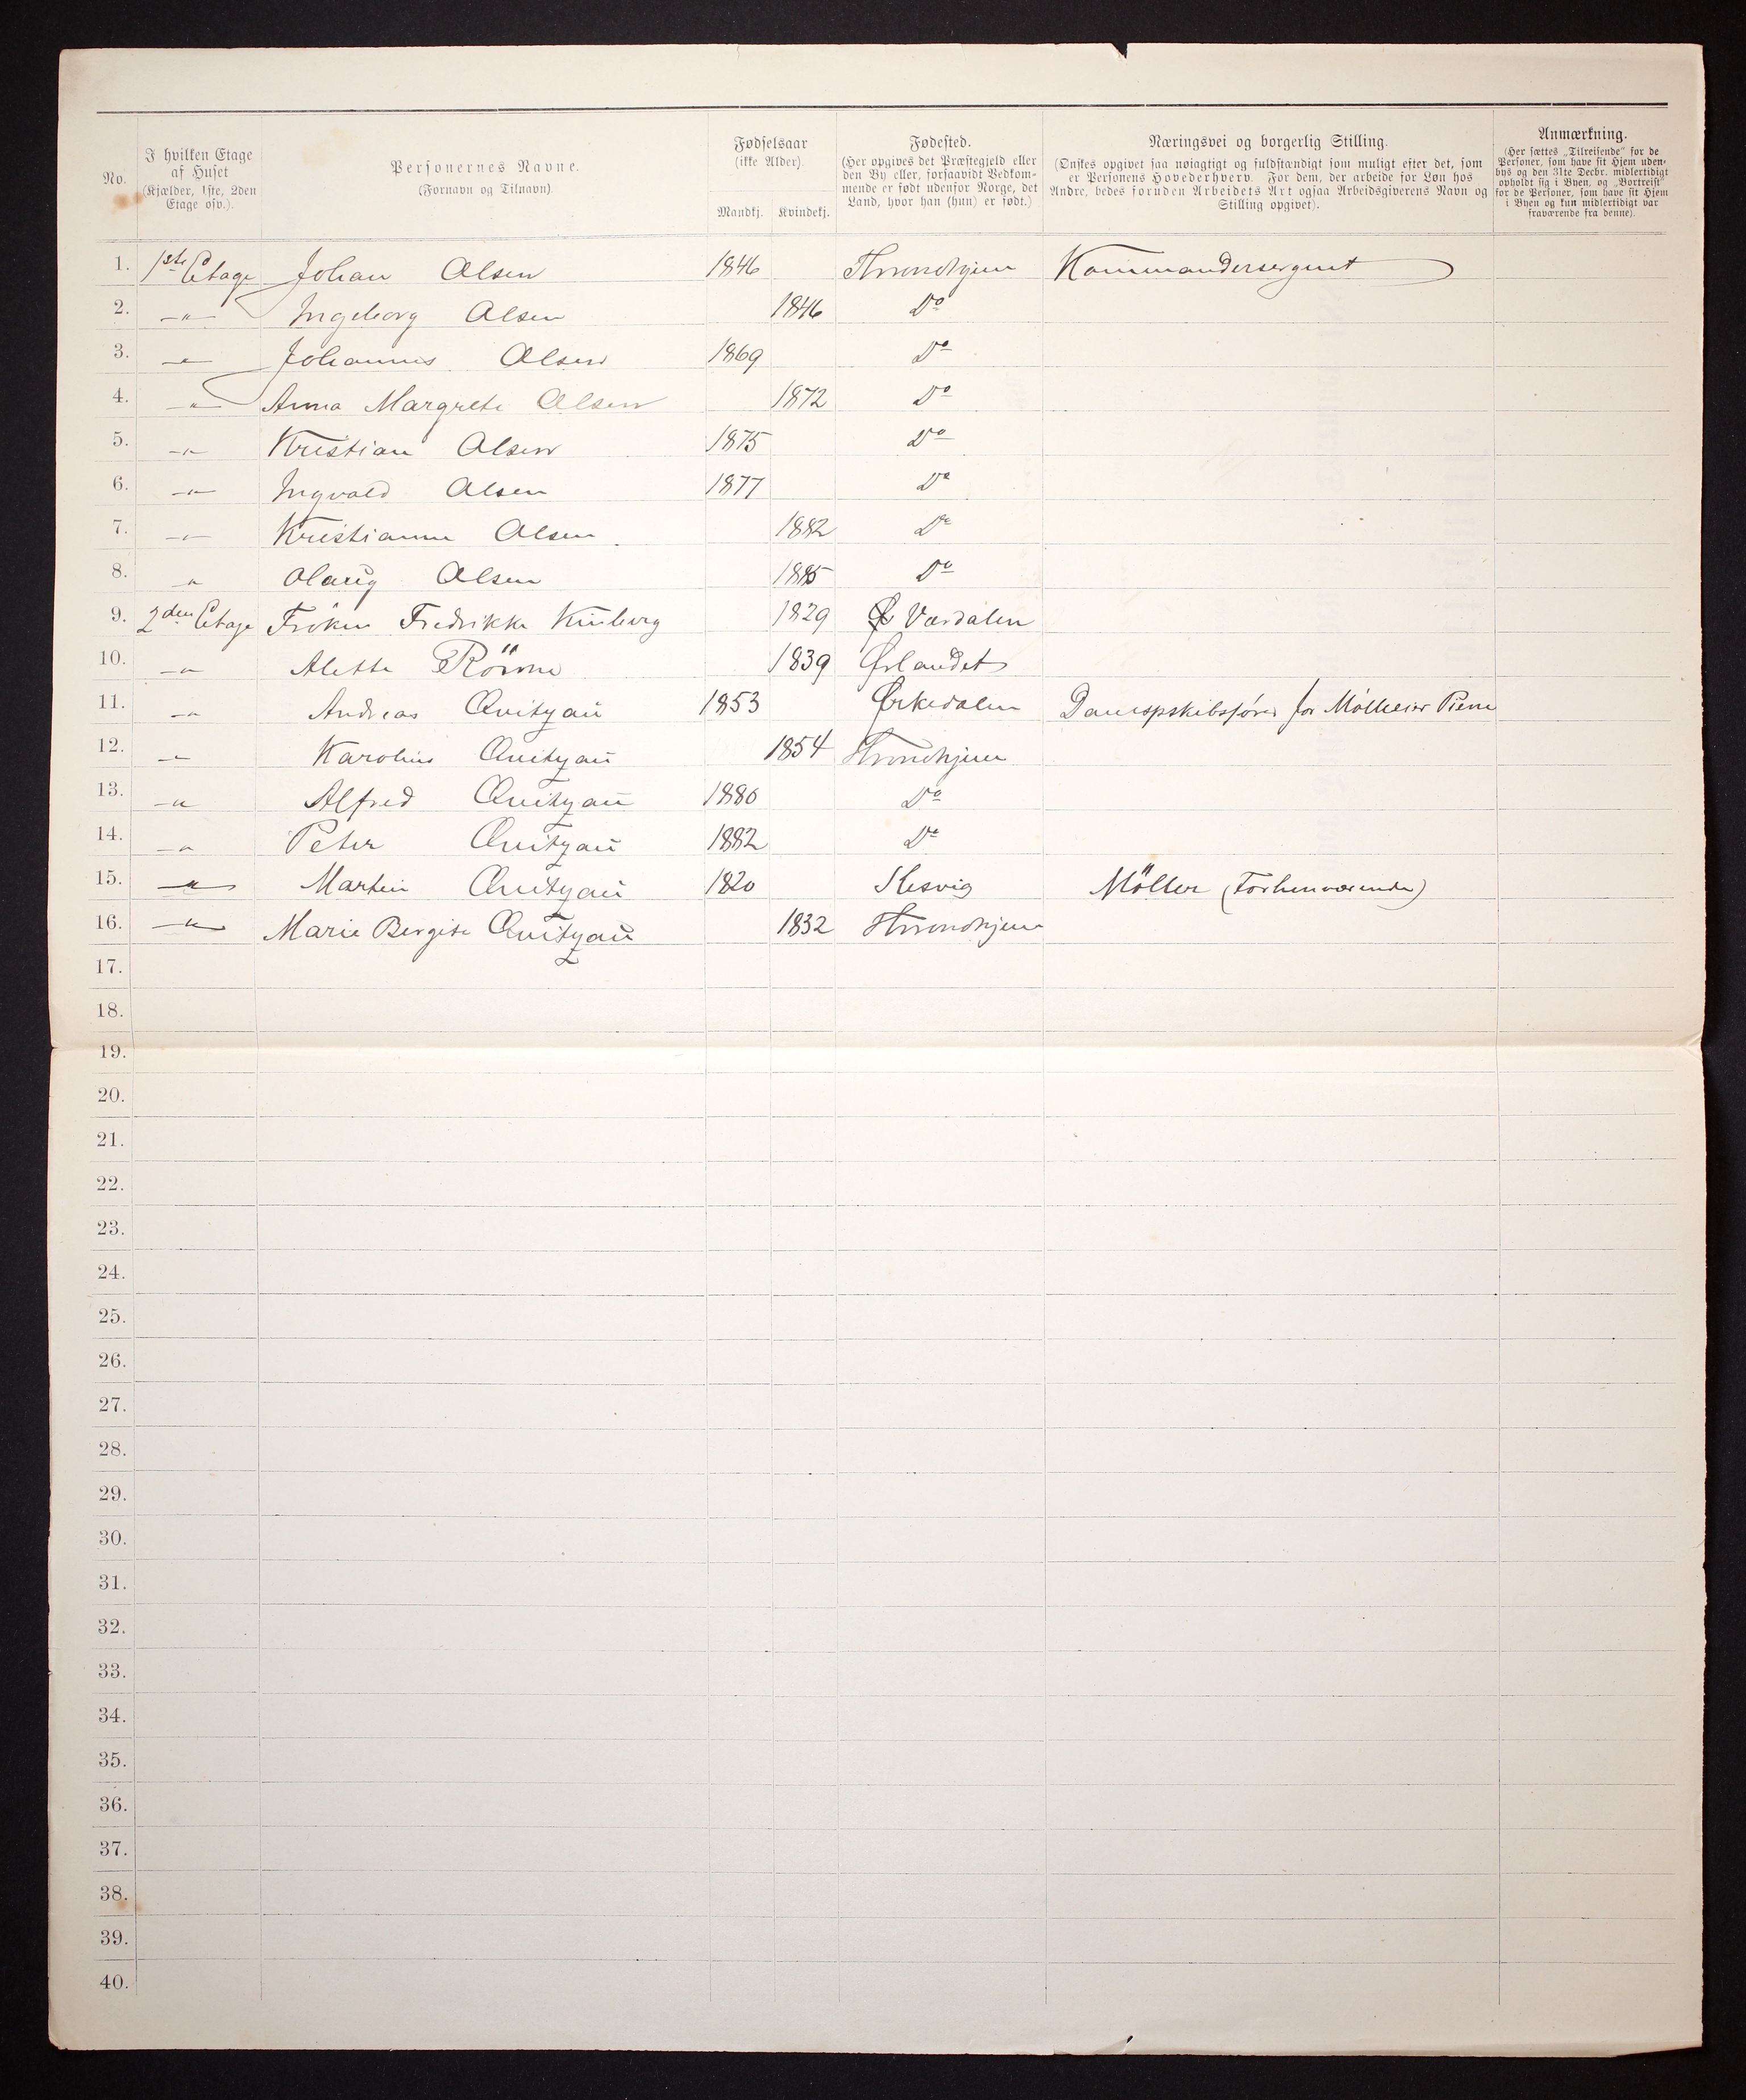 No. I hvilken Etage af Huset (Kjælder, 1ste, 2den Etage osv.). Personernes Navne. (Fornavn og Tilnavn). Fødselsaar (ikke Alder). Mandkj. Kvindekj. Fødested. (Her opgives det Præstegjeld eller den By eller, forsaavidt Vedkommende er født udenfor Norge, det Land, hvor han (hun) er født.) Næringsvei og borgerlig Stilling. (Ønskes opgivet saa nøiagtigt og fuldstændigt som muligt efter det, som er Personens Hovederhverv. For dem, der arbeide for Løn hos Andre, bedes foruden Arbeidets Art ogsaa Arbeidsgiverens Navn og Stilling opgivet). Anmærkning. (Her sættes „Tilreisende" for de Personer, som have sit Hjem udenbys og den 31te Decbr. midlertidigt opholdt sig i Byen, og „Bortreist" for de Personer, som have sit Hjem i Byen og kun midlertidigt var fraværende fra denne).
1. 1ste Etage Johan Olsen 1846 Throndhjem Kommandersergent
2. -"- Ingeborg Olsen 1846 Do
3. -"- Johannes Olsen 1869 Do
4. -"- Anna Margrete Olsen 1872 Do
5. -"- Kristian Olsen 1875 Do
6. -"- Ingvald Olsen 1877 Do
7. -"- Kristianne Olsen. 1882 Do
8. -"- Olaug Olsen 1885 Do
9. 2den Etage Fröken Fredrikke 1829 Værdalen
10. -"- Alette 1839 Ørlandet
11. -"- Andreas Qvitzau 1853 Ørkedalen Dampskibsfører for Mølleeier Piene
12. -"- Karoline Qvitzau 1854 Throndhjem
13. -"- Alfred Qvitzau 1880 Do
14. -"- Peter Qvitzau 1882 Do
15. -"- Martin Qvitzau 1820 Slesvig Möller (Forhenværende)
16. -"- Marie Bergite Qvitzau 1832 Throndhjem
17.
18.
19.
20.
21.
22.
23.
24.
25.
26.
27.
28.
29.
30.
31.
32.
33.
34.
35.
36.
37.
38.
39.
40.